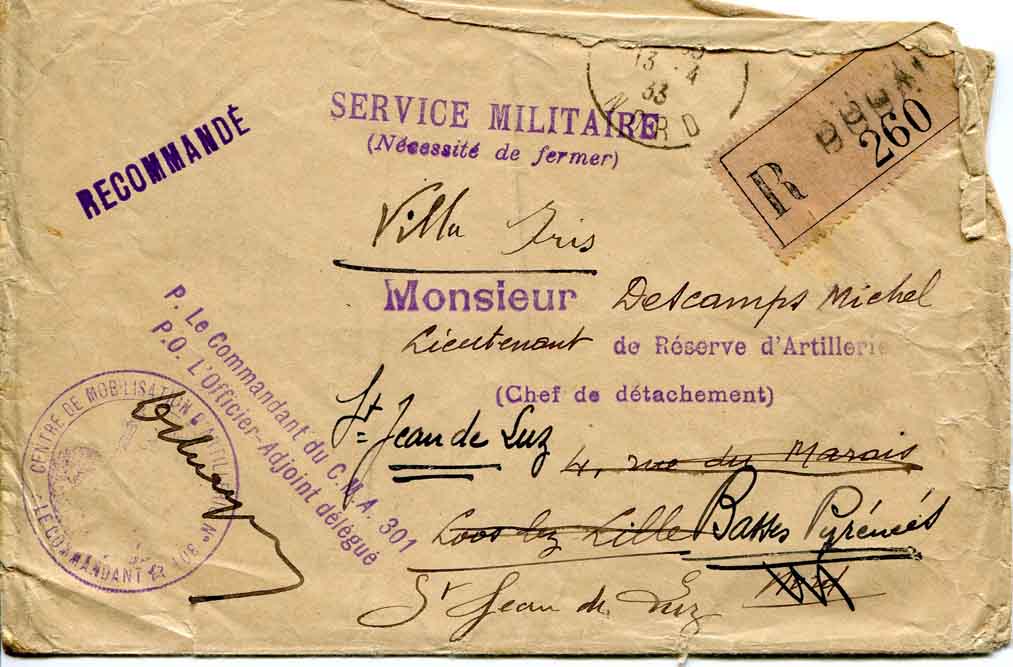 13 - 4
33
NORD
SERVICE MILITAIRE
(Nécessité de fermer)
RECOMMANDÉ
R DOUAI
260
Villa Iris
Monsieur Descamps Michel
Lieutenant de Réserve d'Artillerie
(Chef de détachement)
P. Le Commandant du C. M. A. 301
P.O. L'Officier-Adjoint délégué
CENTRE DE MOBILISATION D'ARTILLERIE N° 301
LE COMMANDANT
St Jean de Luz
4, rue du Marais
Loos lez Lille Basses Pyrénées
Nord
St Jean de Luz